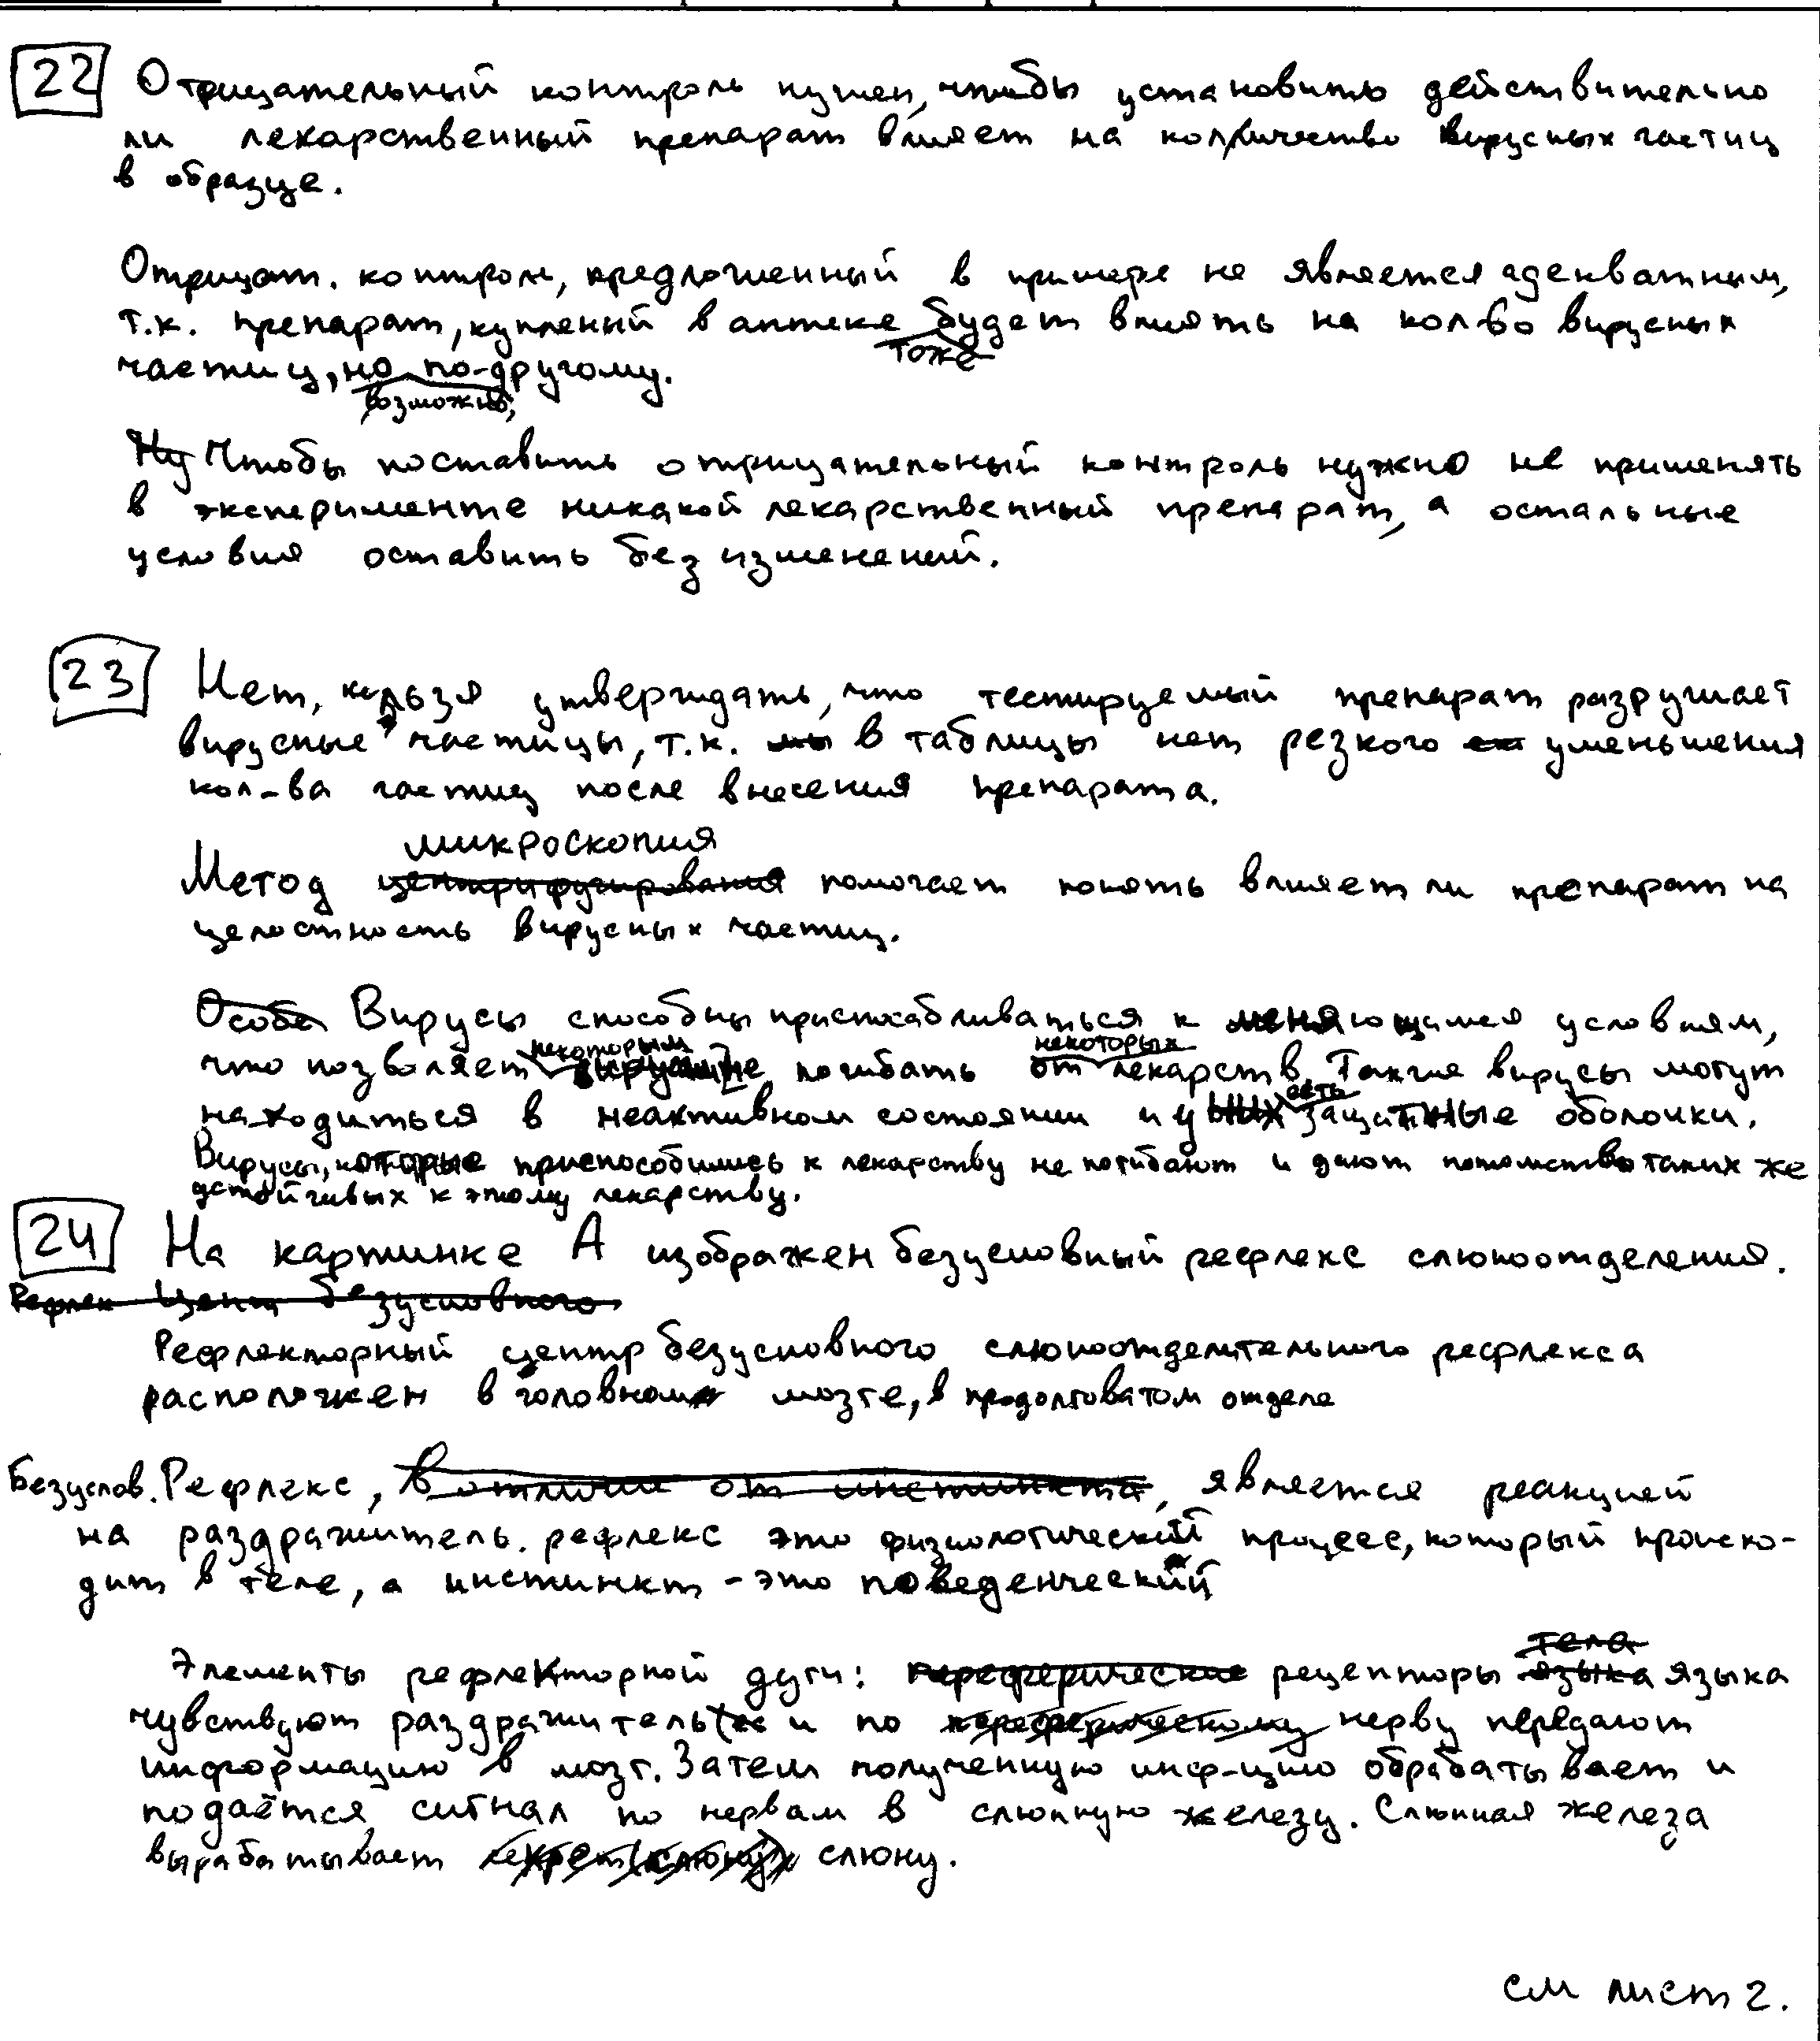 22 Отрицательный контроль нужен, чтобы установить действительно
ли лекарственный препарат влияет на количество вирусных частиц
в образце.
Отрицат. контроль, предложенный в примере не является адекватным,
т.к. препарат, купленый в аптеке тоже будет влиять на кол-во вирусных
частиц, но, возможно, по-другому.
Ну Чтобы поставить отрицательный контроль нужно не применять
в эксперименте никакой лекарственный препарат, а остальные
условия оставить без изменений.
23 Нет, нельзя утверждать, что тестируемый препарат разрушает
вирусные частицы, т.к. мы в таблицы нет резкого уменьшения
кол-ва частиц после внесения препарата.
микроскопия
Метод центрифугирования помогает понять влияет ли препарат на
целостность вирусных частиц.
Особен Вирусы способны приспосабливаться к меняющимся условиям,
что позволяет некоторым не погибать от некоторых лекарств. Такие вирусы могут
находиться в неактивном состоянии и у них есть защитные оболочки.
Вирусы, которые приспособились к лекарству не погибают и дают потомство таких же
устойчивых к этому лекарству.
24 На картинке А изображен безусловный рефлекс слюноотделения.
Рефлек Цент безусловного
Рефлекторный центр безусловного слюноотделительного рефлекса
расположен в головном мозге, в продолговатом отделе
Безуслов. Рефлекс, в отличие от инстинкта, является реакцией
на раздражитель. рефлекс это физиологический процесс, который происхо-
дит в теле, а инстинкт - это поведенческий
Элементы рефлекторной дуги: переферические рецепторы языка тела языка
чувствуют раздражитель и по переферическому нерву передают
информацию в мозг. Затем полученную инф-цию обрабатывает и
подаётся сигнал по нервам в слюнную железу. Слюнная железа
вырабатывает секрет (слюну) слюну.
см лист 2.